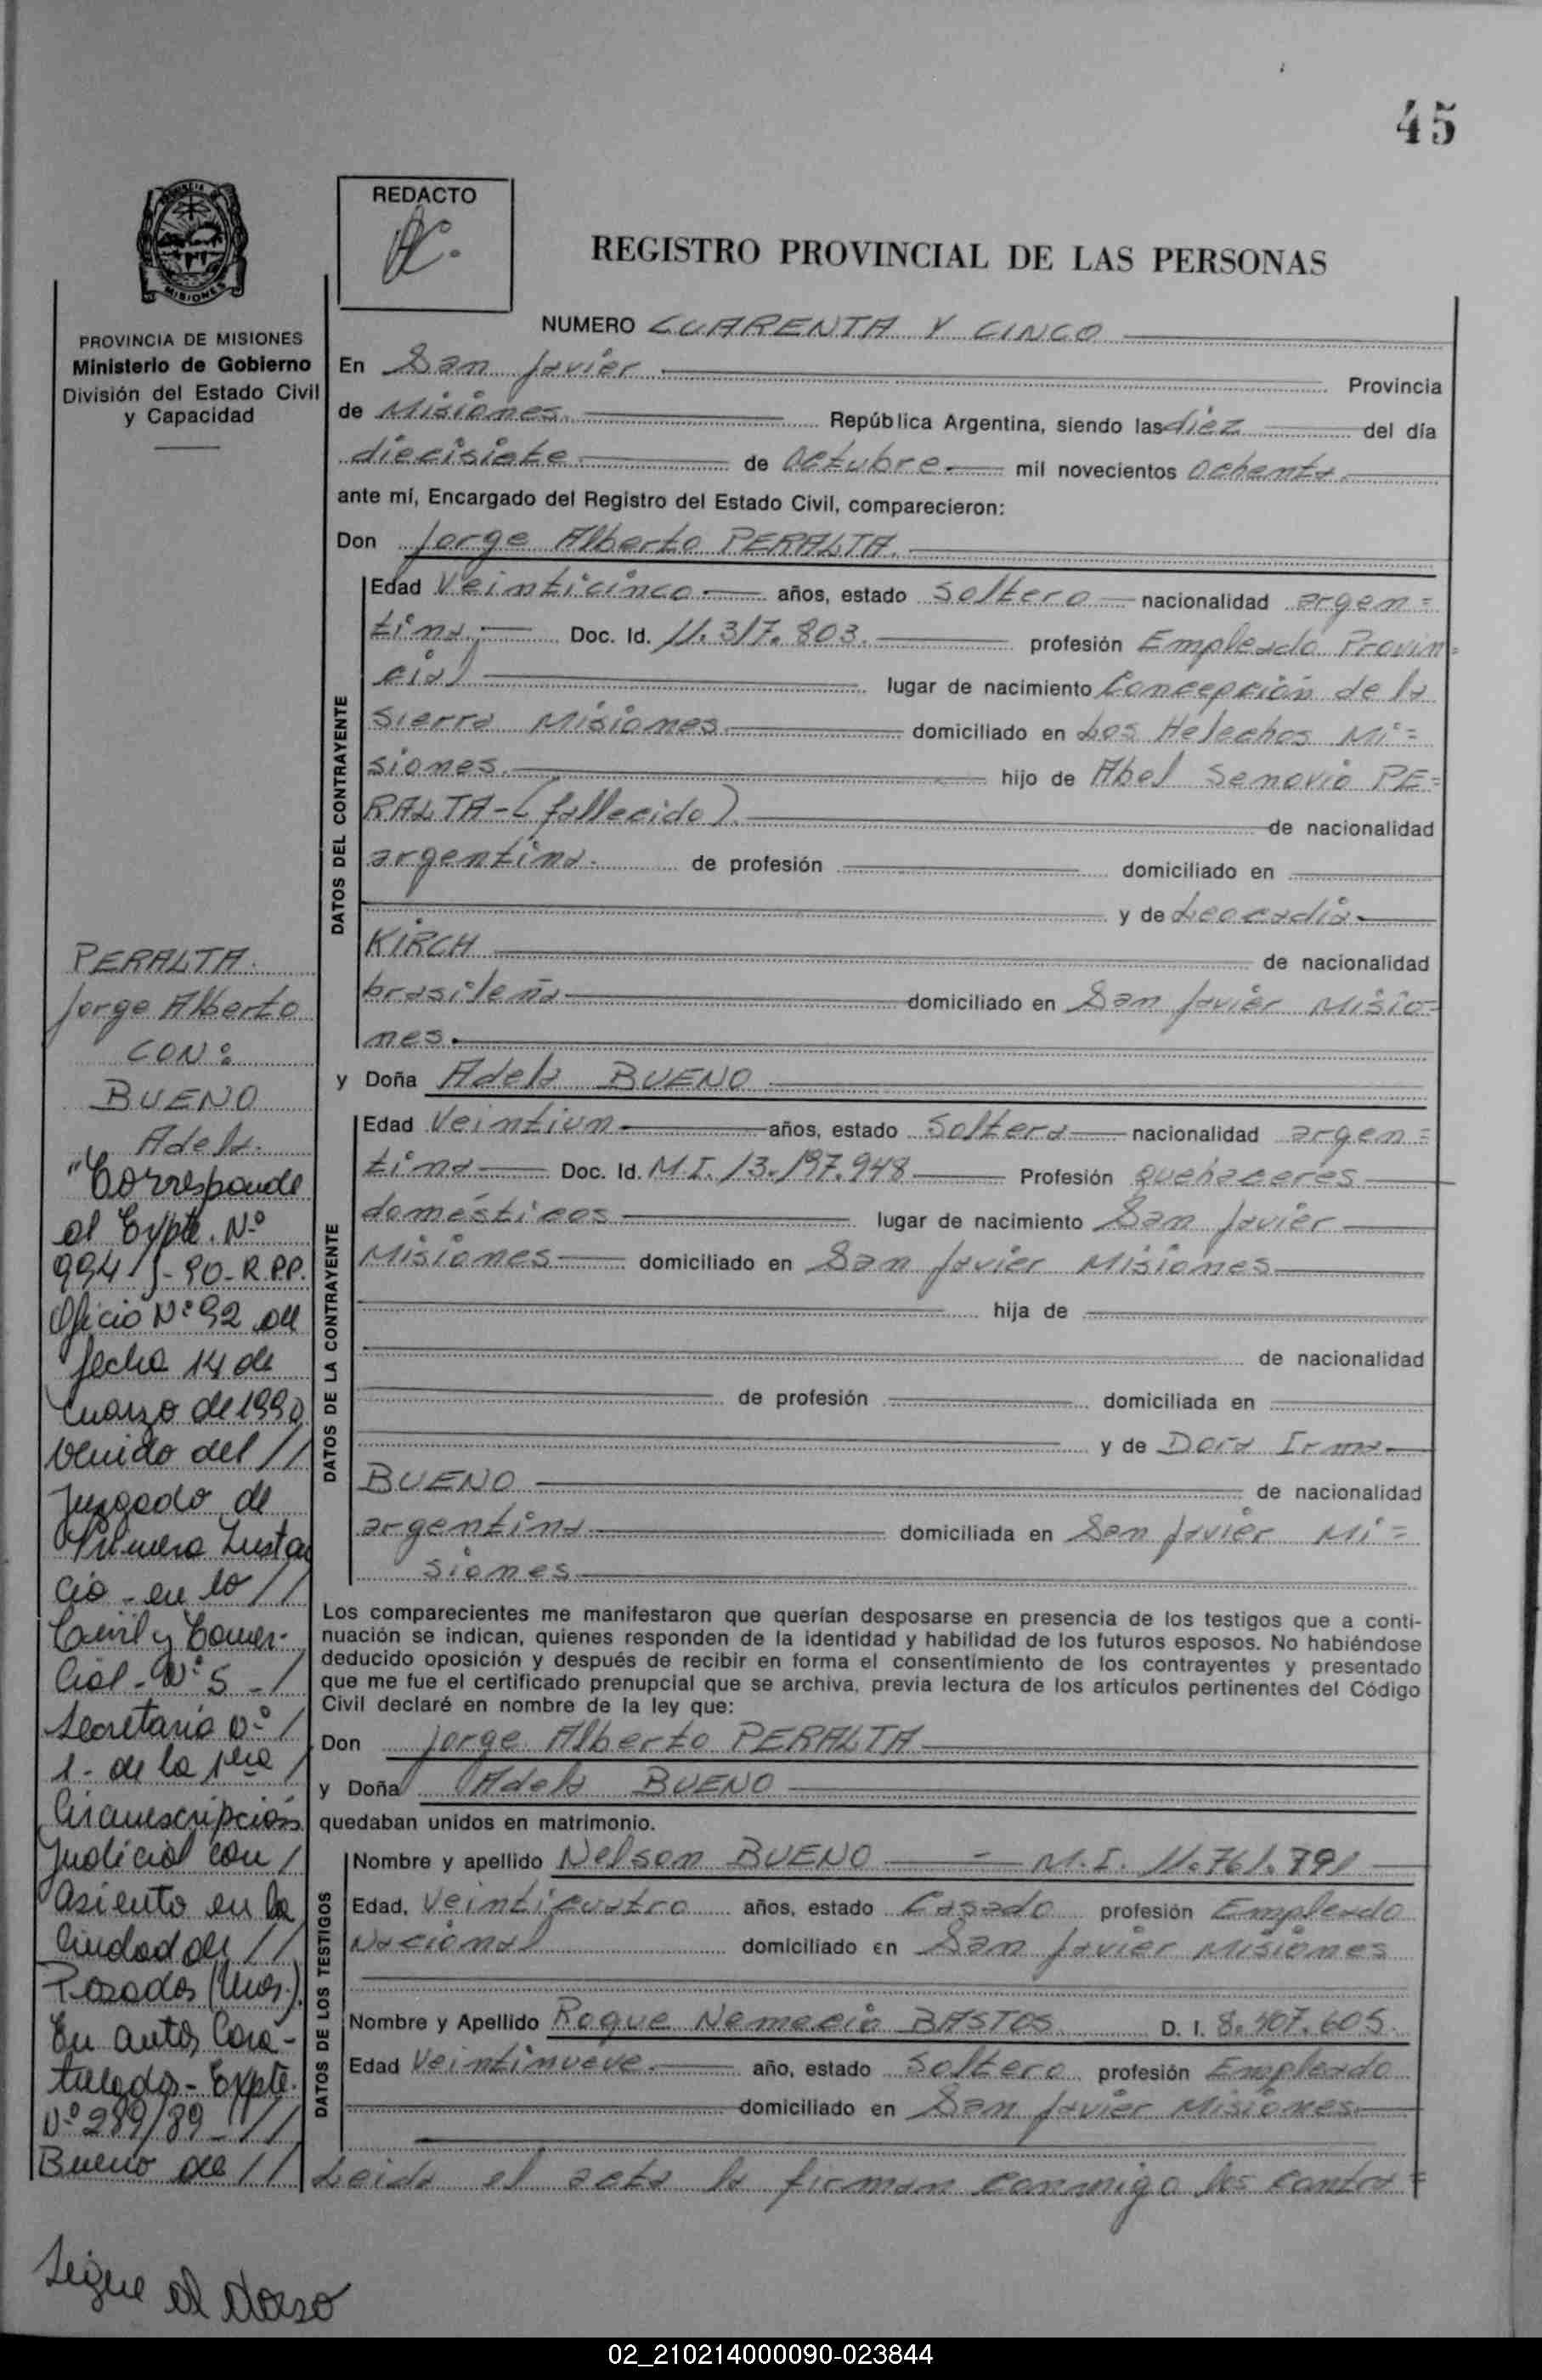 45
REDACTO
REGISTRO PROVINCIAL DE LAS PERSONAS
MISIONES
PROVINCIA DE MISIONES
Ministerio de Gobierno
División del Estado Civil
y Capacidad
NUMERO CUARENTA Y CINCO
En San Javier Provincia
de Misiones. República Argentina, siendo las diez del día
diecisiete de Octubre mil novecientos Ochenta.
ante mí, Encargado del Registro del Estado Civil, comparecieron:
Don Jorge Alberto PERALTA.
DATOS DEL CONTRAYENTE
Edad Veinticinco años, estado Soltero nacionalidad argen=
tina, Doc. Id. 11.317.803. profesión Empleado Provin=
cial lugar de nacimiento Concepción de la
Sierra Misiones domiciliado en Los Helechos Mi=
siones. hijo de Abel Senovio PE=
RALTA-(fallecido). de nacionalidad
argentina. de profesión domiciliado en
y de Leocadia
KIRCH de nacionalidad
brasileña domiciliado en San Javier Misio=
nes.
y Doña Adela BUENO
DATOS DE LA CONTRAYENTE
Edad Veintiun años, estado Soltera nacionalidad argen=
tina Doc. Id. M.I. 13.197.948 Profesión quehaceres
domésticos lugar de nacimiento San Javier
Misiones domiciliado en San Javier Misiones
hija de
de nacionalidad
de profesión domiciliada en
y de Dora Irma
BUENO de nacionalidad
argentina domiciliada en San Javier Mi=
siones
Los comparecientes me manifestaron que querían desposarse en presencia de los testigos que a conti-
nuación se indican, quienes responden de la identidad y habilidad de los futuros esposos. No habiéndose
deducido oposición y después de recibir en forma el consentimiento de los contrayentes y presentado
que me fue el certificado prenupcial que se archiva, previa lectura de los artículos pertinentes del Código
Civil declaré en nombre de la ley que:
Don Jorge Alberto PERALTA
y Doña Adela BUENO
quedaban unidos en matrimonio.
DATOS DE LOS TESTIGOS
Nombre y apellido Nelson BUENO - M.I. 11.761.791
Edad, Veinticuatro años, estado Casado profesión Empleado
Nacional domiciliado en San Javier Misiones
Nombre y Apellido Roque Nemecio BASTOS D. I. 8.407.605.
Edad Veintinueve. año, estado Soltero profesión Empleado
domiciliado en San Javier Misiones
Leida el acta la firman conmigo los contra=
PERALTA.
Jorge Alberto
CON:
BUENO
Adela.
"Corresponde
al Expte. Nº
994/J-90-R.P.P.
Oficio Nº 92 de
fecha 14 de
marzo de 1990
venido del //
Juzgado de
Primera Insta
cia - en lo //
Civil y Comer-
cial - Nº 5 - /
Secretaria Nº /
1 - de la 1era /
Circunscripción
Judicial con /
asiento en la
Ciudad de //
Posadas (Mnes.)
En autos Cara-
tulados - Expte.
Nº 289/89 - //
Bueno de //
Sigue al dorso
02_210214000090-023844